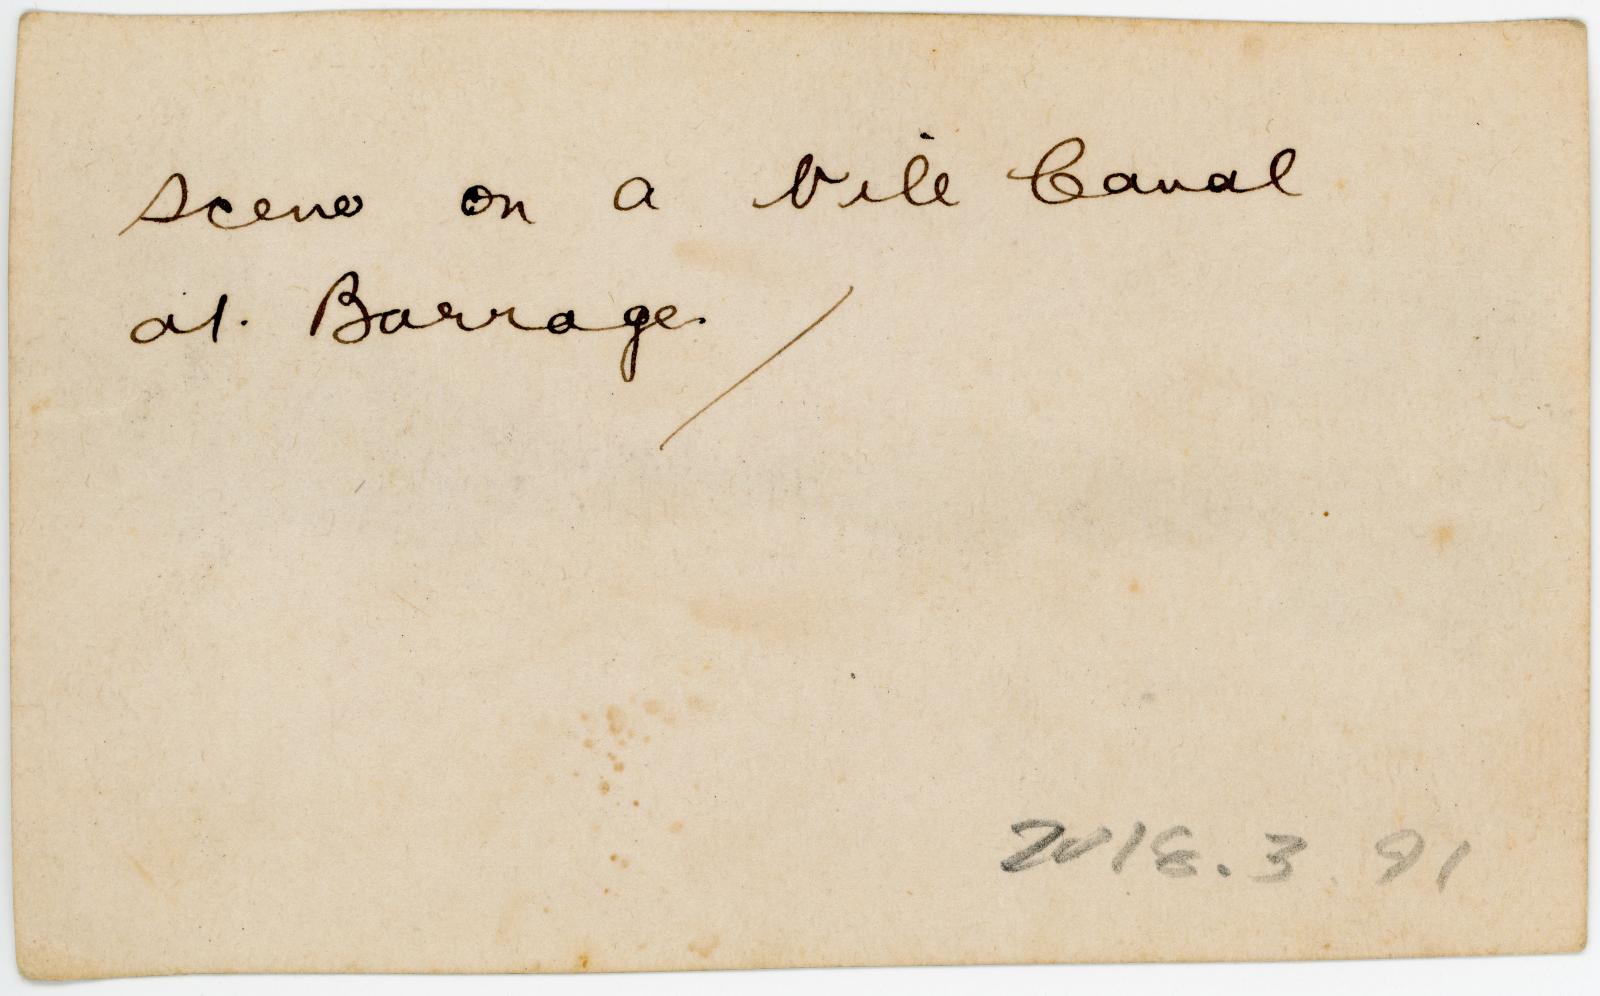 Scene on a Nile Canal
at. Barrage.
2018.3.91